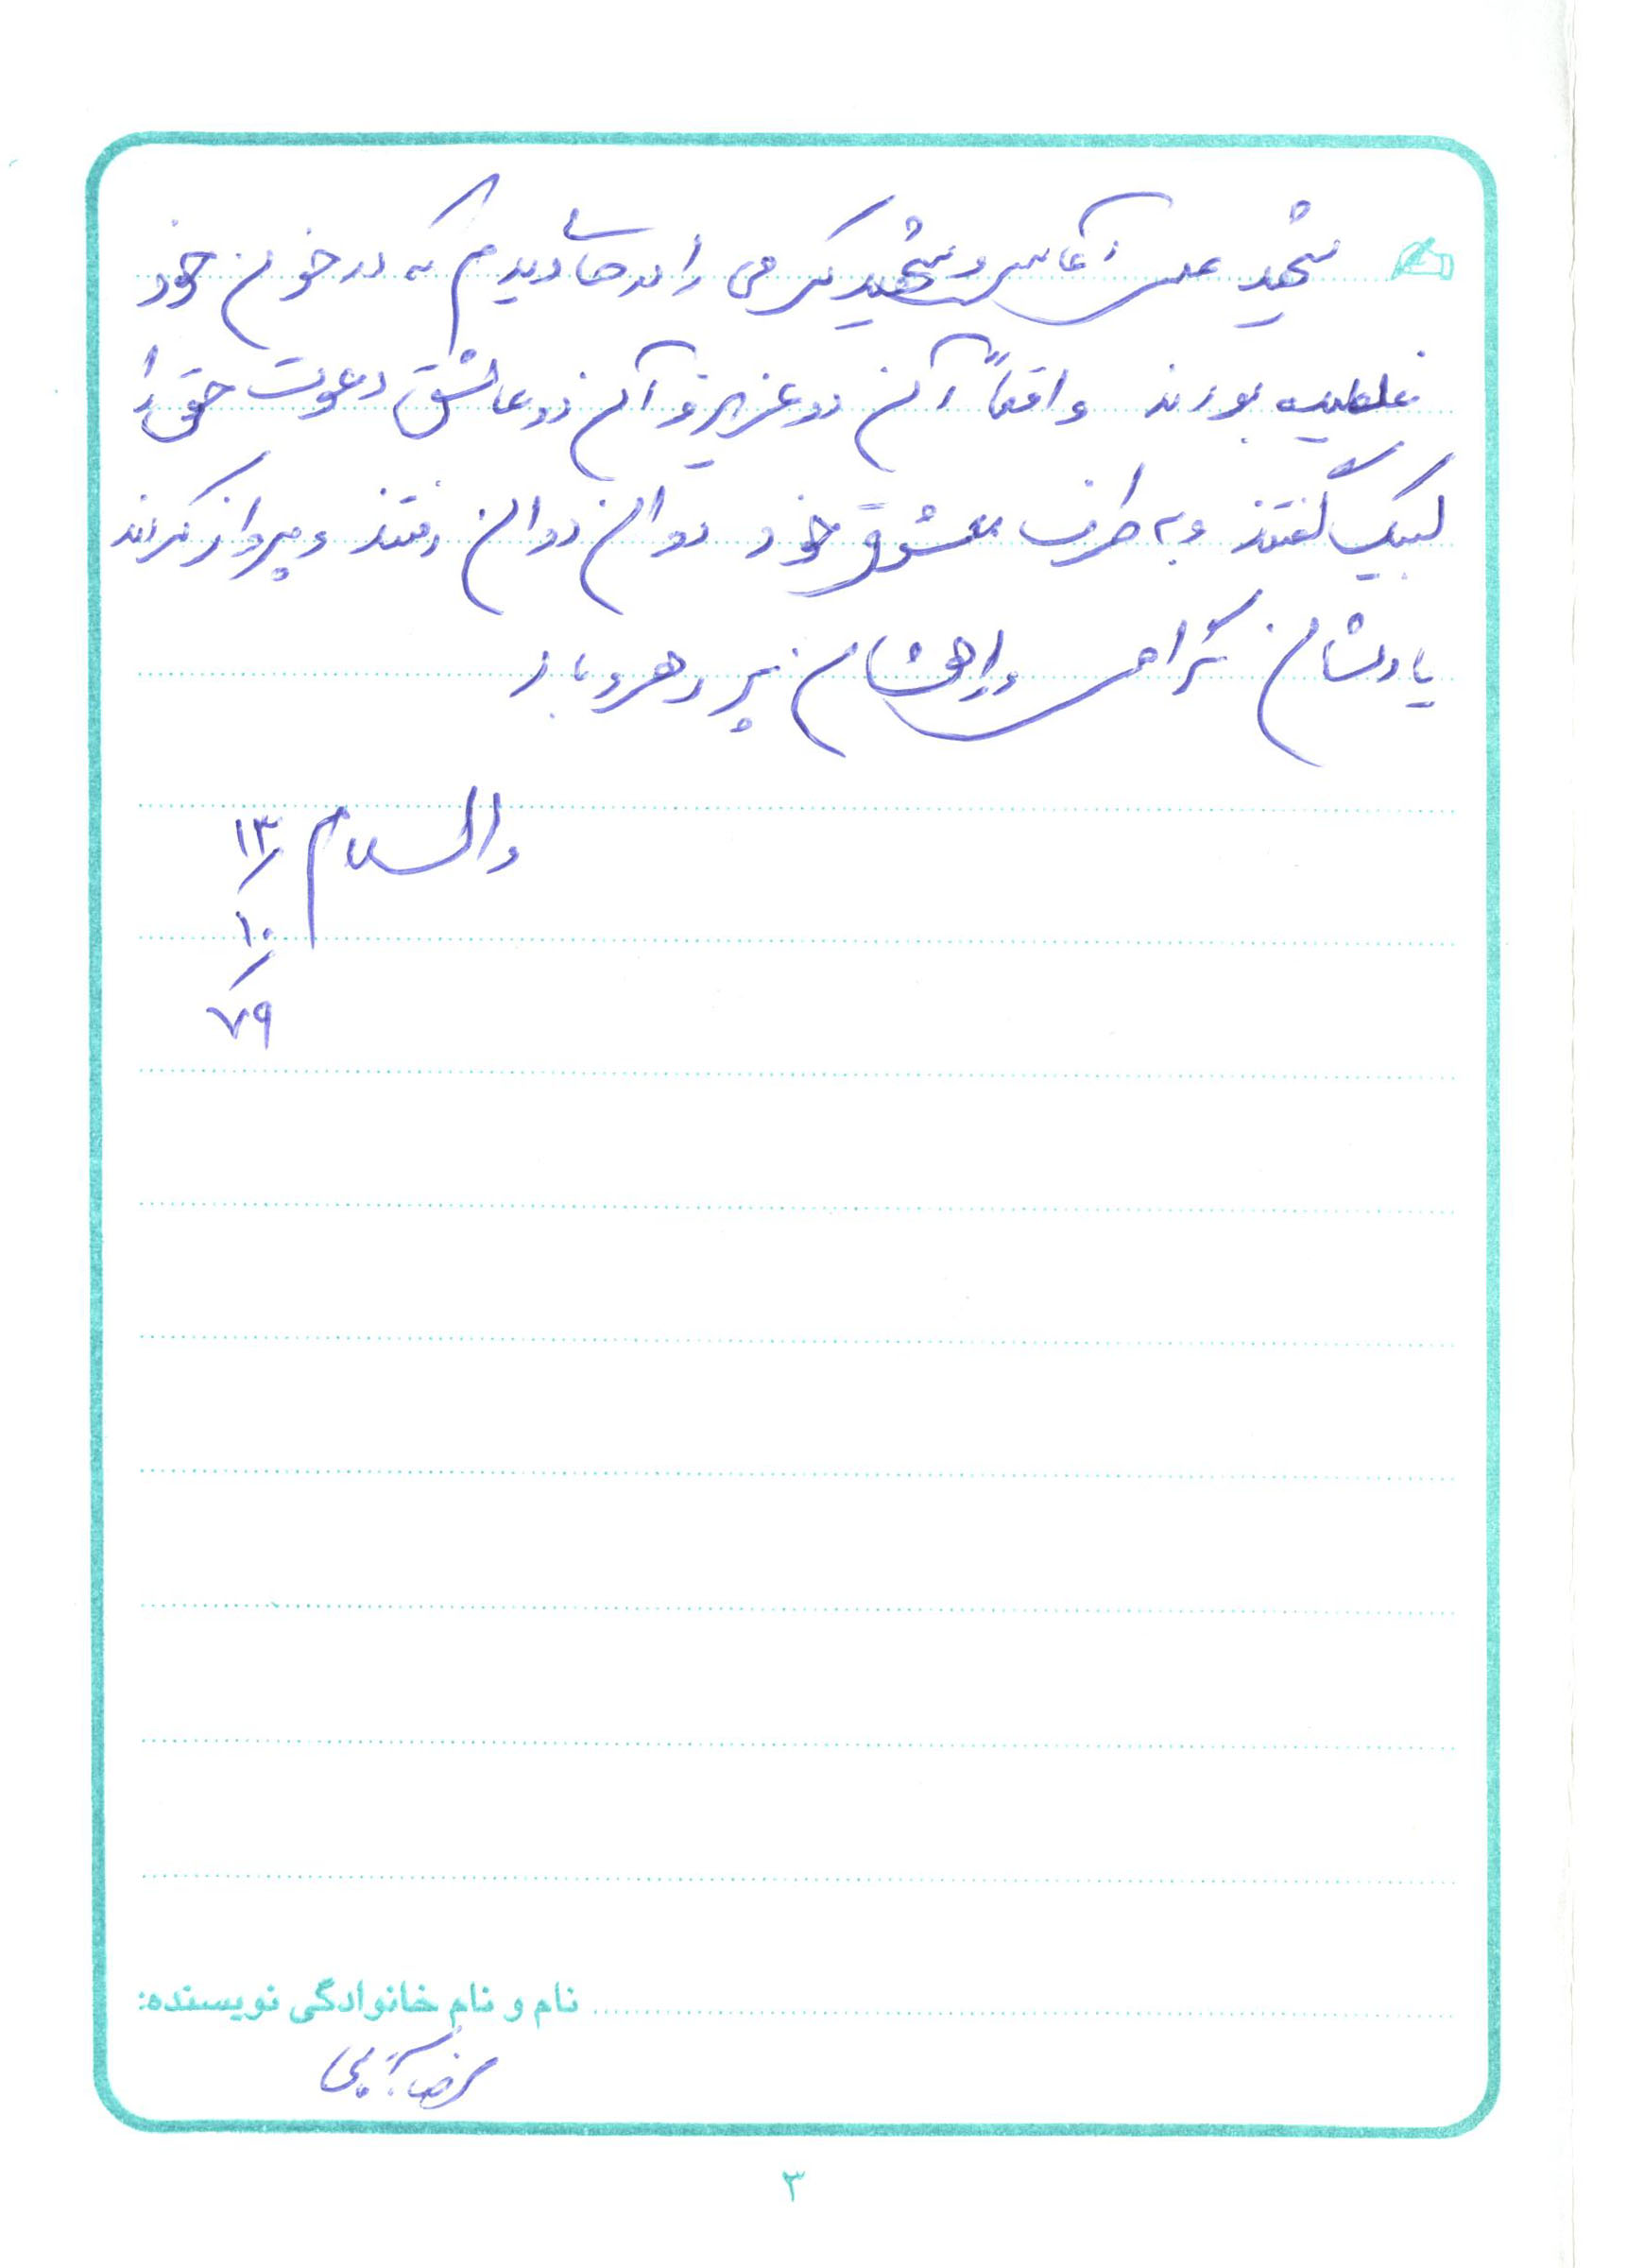 شهید علی آقاسی و شهید کرمی را در جا دیدم که در خون خود
غلطیده بودند واقعاً آن دو عزیز و آن دو عاشق دعوت حق را
لبیک گفتند و به طرف معشوق خود دوان دوان رفتند و پرواز کردند
یادشان گرامی و راهشان پر رهرو باد
والسلام ۱۳/۱۰/۷۹
نام و نام خانوادگی نویسنده:
۳